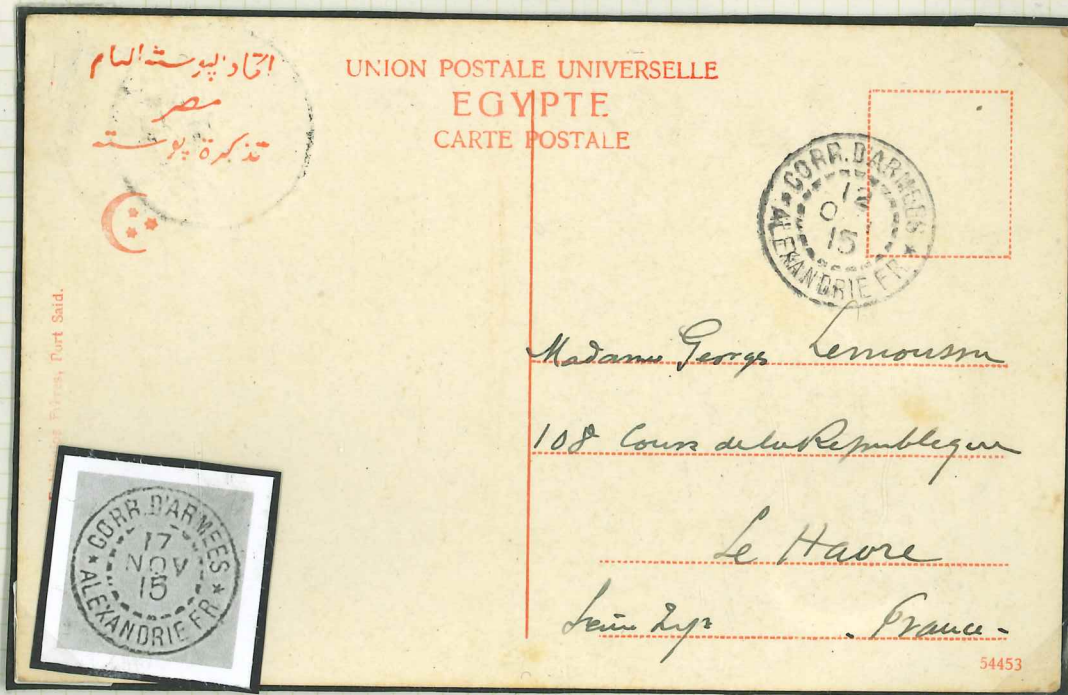 اتحاد البوستة العام
مصر
تذكرة بوستة
UNION POSTALE UNIVERSELLE
EGYPTE
CARTE POSTALE
CORR. D'ARMEES
12
15
* ALEXANDRIE FR. *
Frères, Port Said.
Madame Georges
108 Cours de la Republique
Le Havre
Seine
- France -
54453
CORR. D'ARMEES
17
NOV
15
* ALEXANDRIE FR. *